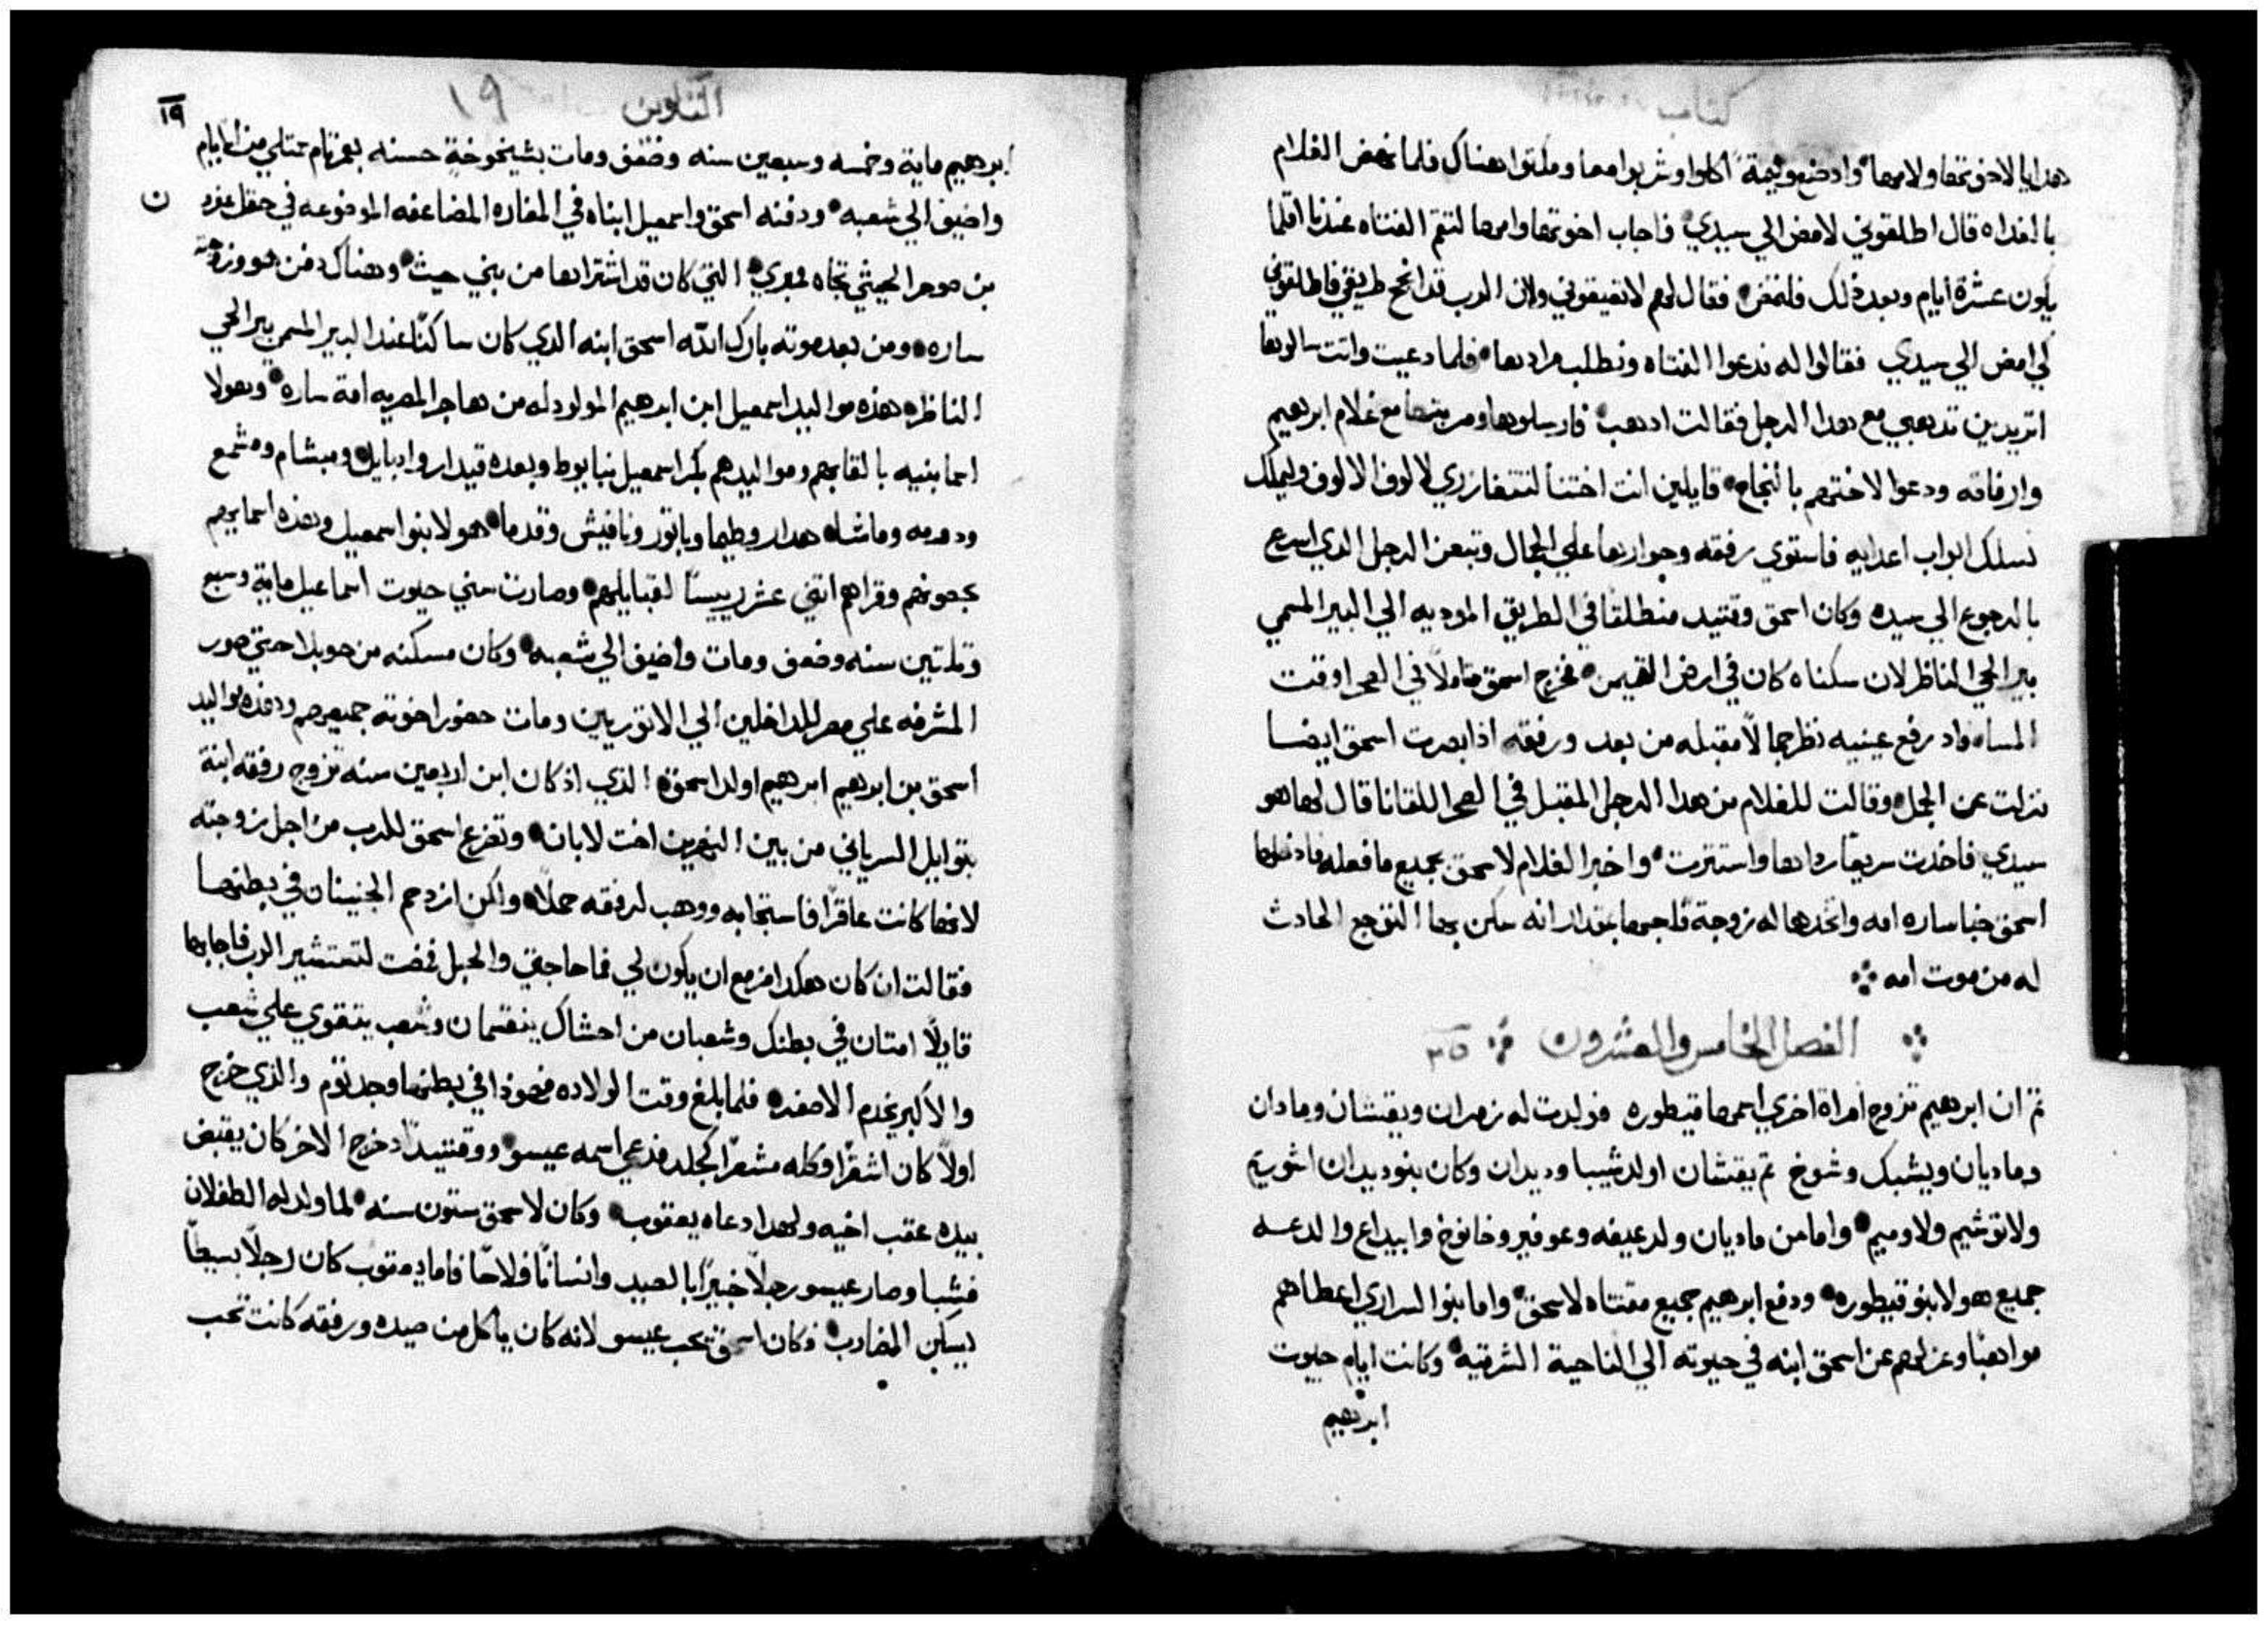 كتاب
هدايا لاخوتها ولامها وادصنع وليمة اكلوا وشربوا معا ومكتوا هناك فلما نهض الغلام
بالغداه قال اطلقوني لامض الي سيدي فاجاب اخوتها وامها لتقم الفتاه عندنا اقلما
يكون عشرة ايام وبعد ذلك فلتمض فقال لهم لا تعيقوني ولان الرب قد انجح طريقي فاطلقوني
لكي امض الي سيدي فقالوا له ندعوا الفتاه ونطلب مرادها فلما دعيت واتت سالوها
اتريدين تدهبي مع هدا الرجل فقالت ادهب فارسلوها ومربيتها مع غلام ابرهيم
وارفاقه ودعوا لاختهم بالنجاح قايلين انت اختنا لتتغازري لالوف الالوف وليملك
نسلك ابواب اعدايه فاستوي رفقه وجوارها علي الجمال وتبعن الرجل الدي اسرع
بالرجوع الي سيده وكان اسحق وقتيد منطلقا في الطريق الموديه الي البير المسمي
بير الحي الناظر لان سكناه كان في ارض القيمن فخرج اسحق متاملا في الصحرا وقت
المساء واد رفع عينيه نظر جمالا مقبله من بعد ورفقه اذا بصرت اسحق ايضا
نزلت عن الجمل وقالت للغلام من هدا الرجل المقبل في الصحرا للقانا قال لها هو
سيدي فاخدت سريعا رداها واستترت واخبر الغلام لاسحق بجميع ما فعله فادخلها
اسحق خبا ساره امه واتخدها له زوجة فاحبها بمقدار انه سكن بها التوجع الحادث
له من موت امه
الفصل الخامس والعشرون ٢٥
تم ان ابرهيم تزوج امراة اخري اسمها قيطوره فولدت له زمران ويقشان ومادان
وماديان ويشبك وشوخ تم يقشان اولد شيبا وديدان وكان بنو ديدان اشوريم
ولاتوشيم ولاوميم واما من ماديان ولد عيفه وعوفير وخانوخ وابيداع والدعه
جميع هولا بنو قيطوره ودفع ابرهيم جميع مقتناه لاسحق واما بنوا السراري اعطاهم
مواهبا وعزلهم عن اسحق ابنه في حيوته الي الناحية الشرقيه وكانت ايام حيوت
ابرهيم
التكوين ١٩
١٩
ابرهيم ماية وخمسه وسبعين سنه وضعف ومات بشيخوخة حسنه بعمر تام ممتلي من الايام
واضيف الي شعبه ودفنه اسحق واسمعيل ابناه في المغاره المضاعفه الموضوعه في حقل عفرون
بن صوحر الحيثي تجاه ممري التي كان قد اشتراها من بني حيث وهناك دفن هو وزوجته
ساره ومن بعد موته بارك الله اسحق ابنه الدي كان ساكنا عند البير المسمي بير الحي
الناظر هذه مواليد اسمعيل ابن ابرهيم المولود له من هاجر المصريه امة ساره وهولا
اسما بنيه بالقابهم ومواليدهم بكر اسمعيل نبايوط وبعده قيدار وادبايل ومبشام ومشمع
ودومه وماشا هدار وطيما وياتور ونافيش وقدما هولا بنو اسمعيل وهذه اسمايهم
بحصونهم وقراهم اتني عشر رييسا لقبايلهم وصارت سني حيوت اسماعيل ماية وسبع
وتلتين سنه وضعف ومات واضيف الي شعبه وكان مسكنه من حويلا حتي صور
المشرفه علي مصر للداخلين الي الاتوريين ومات حضور اخوته جميعهم وهذه مواليد
اسحق بن ابرهيم ابرهيم اولد اسحق الذي اذ كان ابن اربعين سنه تزوج رفقه ابنة
بتوايل السرياني من بين النهرين اخت لابان وتضرع اسحق للرب من اجل زوجته
لانها كانت عاقرا فاستجابه ووهب لرفقه حملا ولكن ازدحم الجنينان في بطنها
فقالت ان كان هكدا مزمع ان يكون لي فما حاجتي والحبل فمضت لتستشير الرب فاجابها
قايلا امتان في بطنك وشعبان من احشاك ينقسمان وشعب يتقوي علي شعب
والاكبر يخدم الاصغر فلما بلغ وقت الولاده فهوذا في بطنها وجد توم والذي خرج
اولا كان اشقرا وكله مشعرا كجلد فدعي اسمه عيسو ووقتيد اد خرج الاخر كان يقبض
بيده عقب اخيه ولهدا دعاه يعقوب وكان لاسحق ستون سنه لما ولد له الطفلان
فشبا وصار عيسو رجلا خبيرا بالصيد وانسانا فلاحا فاما يعقوب كان رجلا بسيطا
يسكن المضارب وكان اسحق يحب عيسو لانه كان ياكل من صيده ورفقه كانت تحب